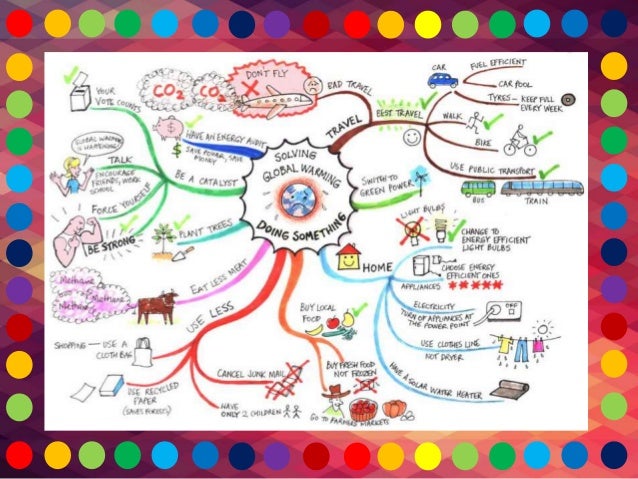 SOLVING
GLOBAL WARMING
DOING SOMETHING
TRAVEL
BAD TRAVEL
DON'T FLY
CO2
CO2
BEST TRAVEL
CAR
FUEL EFFICIENT
CAR POOL
TYRES - KEEP FULL
EVERY WEEK
WALK
BIKE
USE PUBLIC TRANSPORT
BUS
TRAIN
SWITH TO
GREEN POWER
HOME
LIGHT BULBS
CHANGE TO
ENERGY EFFICIENT
LIGHT BULBS
APPLIANCES
CHOOSE ENERGY
EFFICIENT ONES
ELECTRICITY
TURN OF APPLIANCES AT
THE POWER POINT
OFF
USE CLOTHES LINE
NOT DRYER
HAVE A SOLAR WATER HEATER
BUY LOCAL
FOOD
BUY FRESH FOOD
NOT FROZEN
GO TO FARMERS MARKETS
USE LESS
CANCEL JUNK MAIL
HAVE
ONLY 2 CHILDREN
USE RECYCLED
PAPER
(SAVES FORESTS)
SHOPPING - USE A
CLOTH BAG
EAT LESS MEAT
Methane
Methane
Methane
PLANT TREES
BE A CATALYST
YOUR
VOTE COUNTS
TALK
ENCOURAGE
FRIENDS, WORK
SCHOOL
GLOBAL WARMING
IS HAPPENING!
FORCE YOURSELF
BE STRONG
HAVE AN ENERGY AUDIT
SAVE POWER, SAVE
MONEY